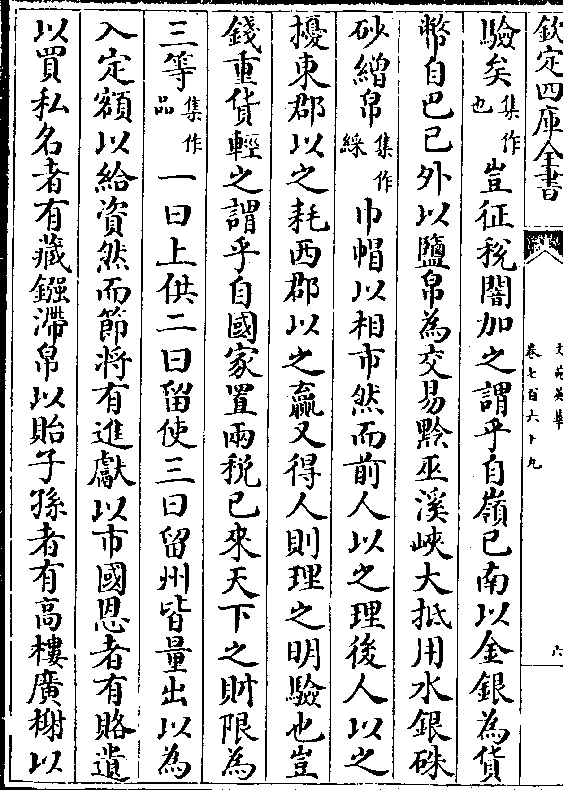 欽定四庫全書
文苑英華
卷七百六十九
六
驗矣集作也豈征税闇加之謂乎自嶺已南以金銀為貨
幣自巴已外以鹽帛為交易黔巫溪峽大抵用水銀硃
砂繒帛集作綵巾帽以相市然而前人以之理後人以之
擾東郡以之耗西郡以之贏又得人則理之明驗也豈
錢重貨輕之謂乎自國家置兩税已來天下之財限為
三等集作品一曰上供二曰留使三曰留州皆量出以為
入定額以給資然而節將有進獻以市國恩者有賂遺
以買私名者有藏鏹滯帛以貽子孫者有高樓廣榭以